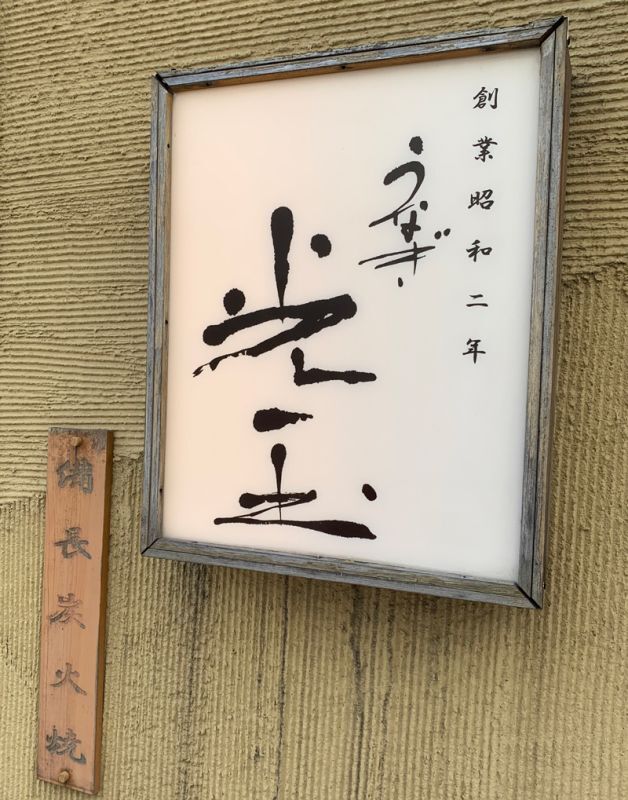 創業昭和二年
うなぎ
光玉
備長炭火焼